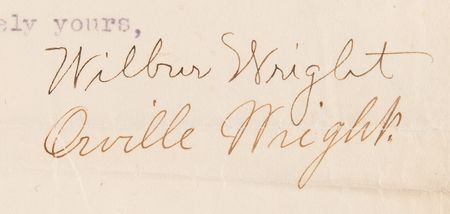 ely yours,
Wilbur Wright
Orville Wright.